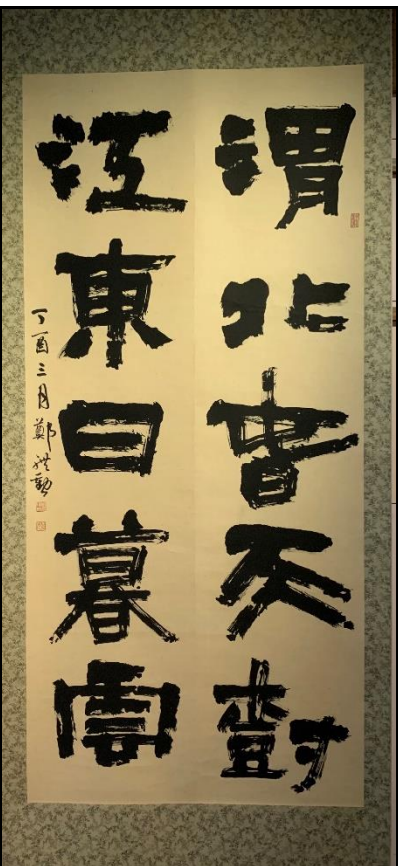 渭北春天樹
江東日暮雲
丁酉三月鄭